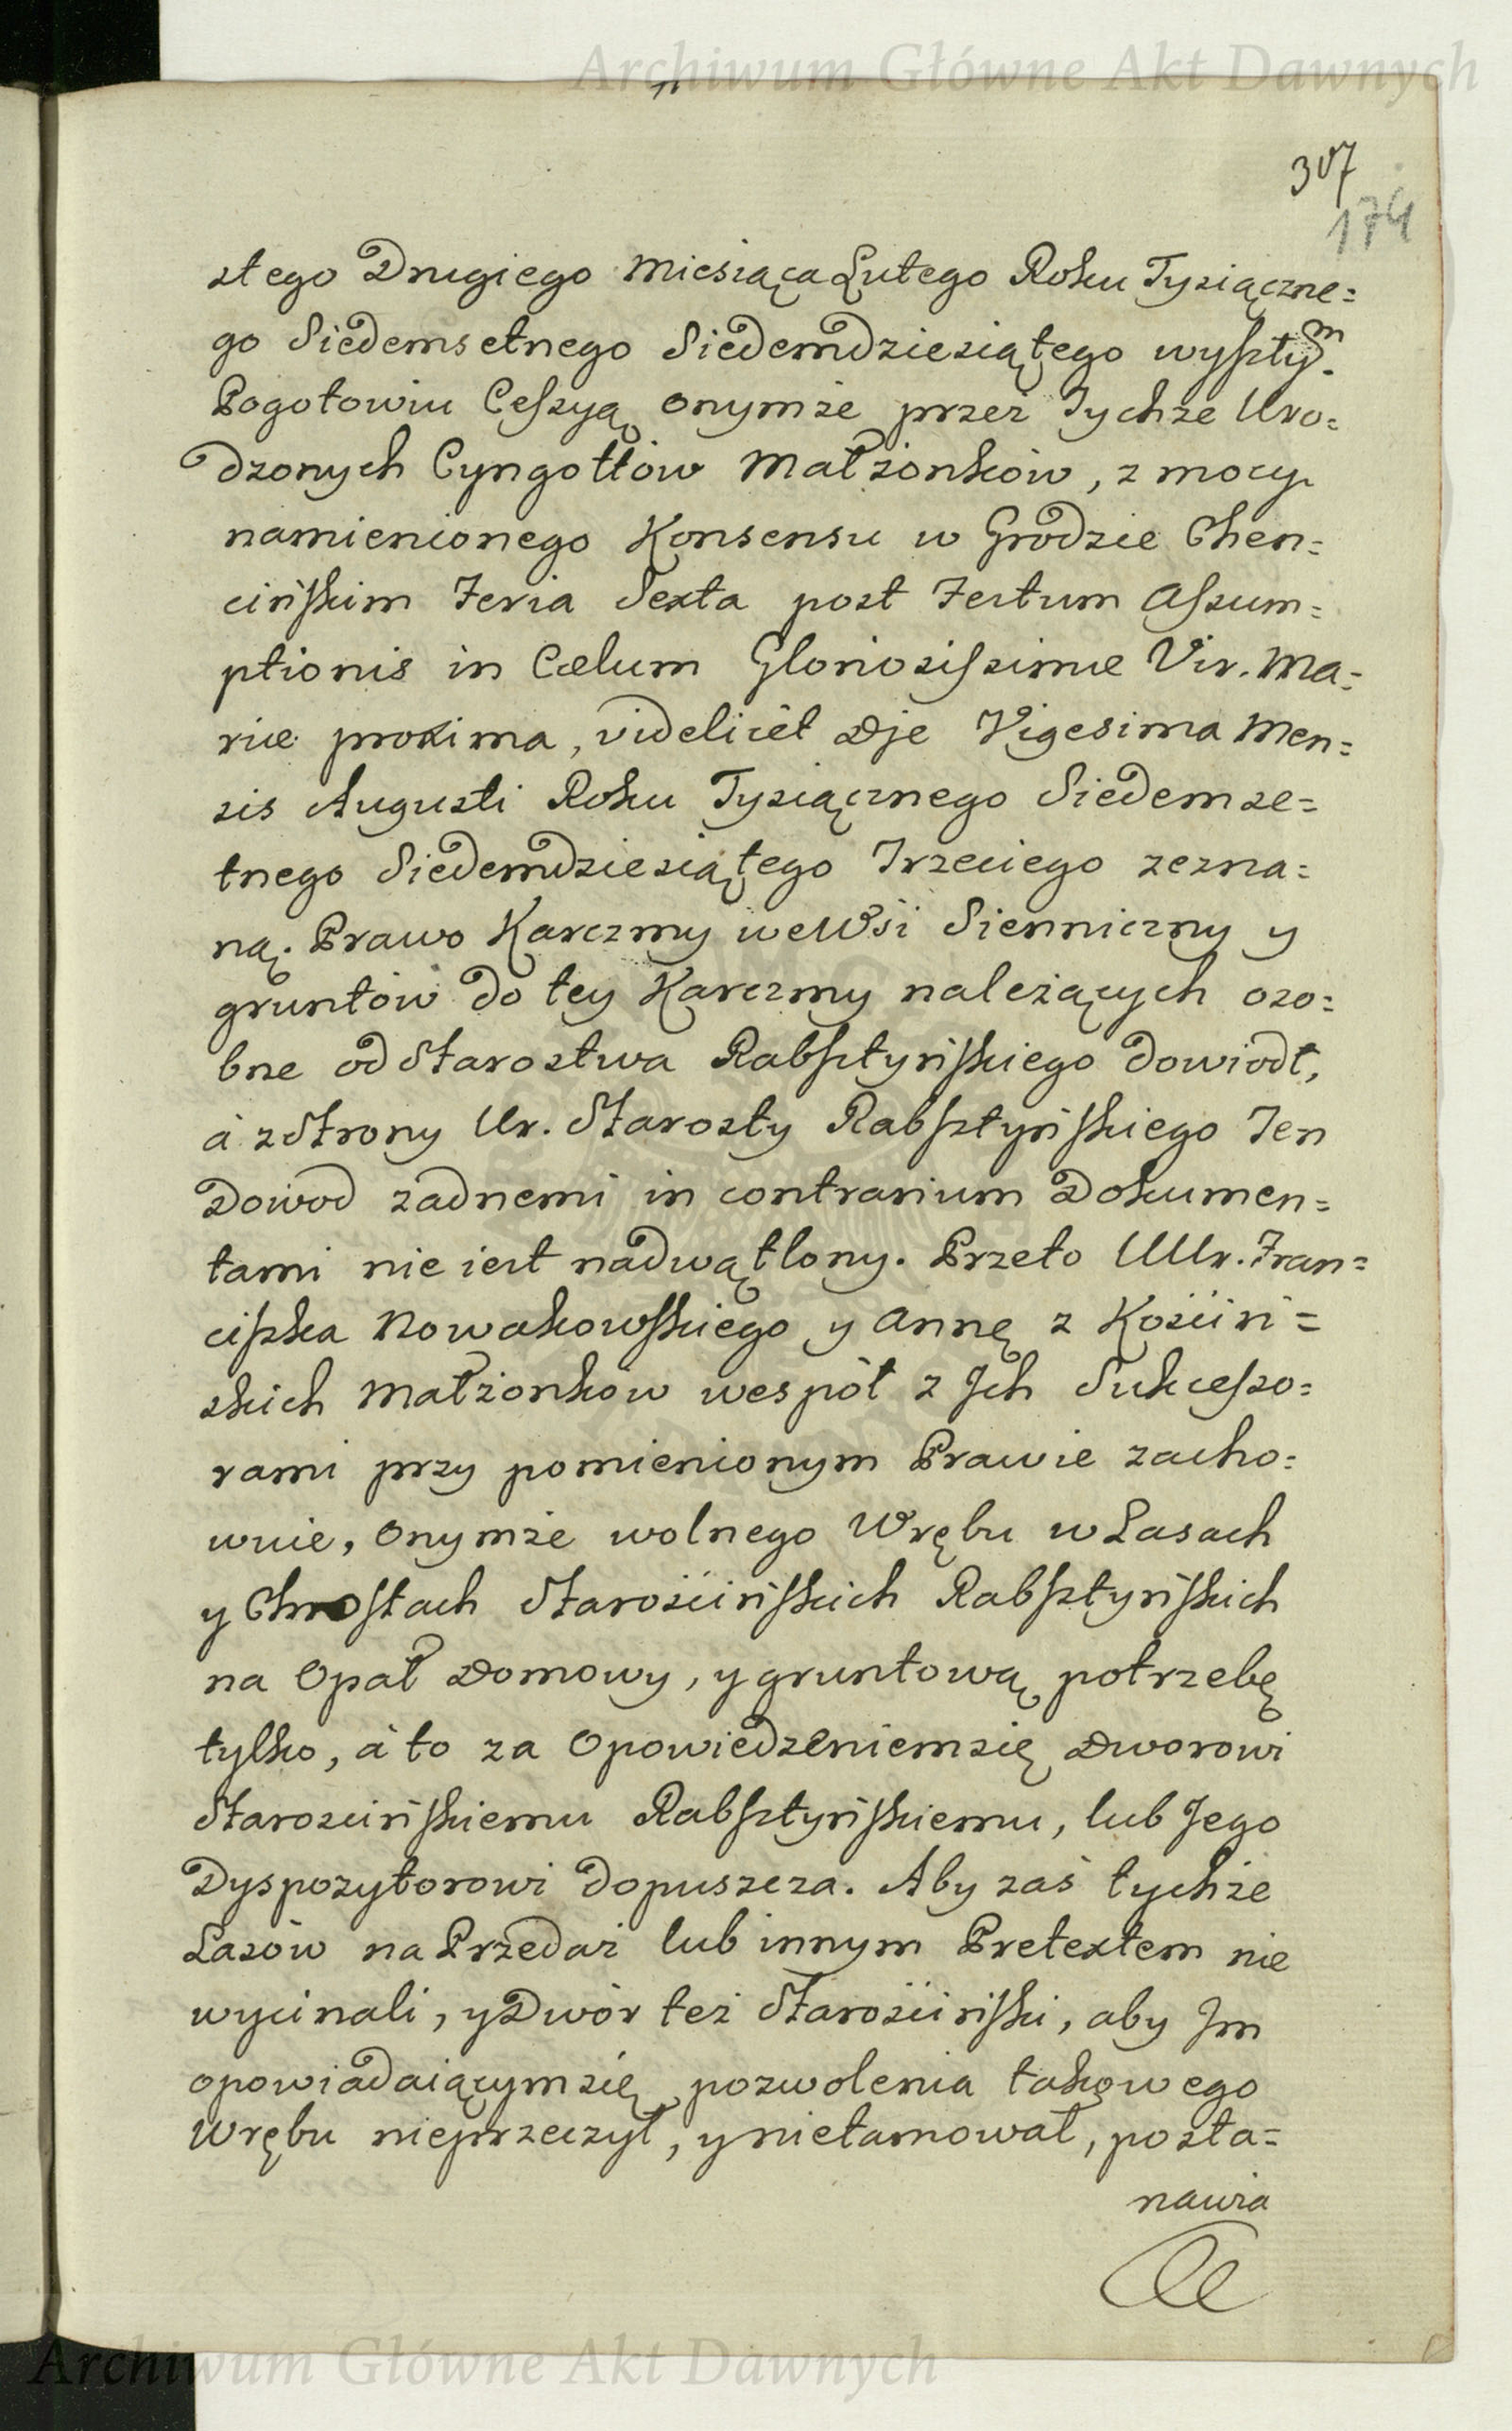 Archiwum Główne Akt Dawnych
307
174
stego Drugiego Miesiąca Lutego Roku Tysiączne=
go Siedemsetnego Siedemdziesiątego wyszłym.
Pogotowiu Cessyą onymże przez Tychże Uro=
dzonych Cyngottów Małżonków, z mocy
namienionego Konsensu w Grodzie Chen=
cińskim Feria Sexta post Festum Assum=
ptionis in Cælum Gloriosissimæ Vir. Ma=
riæ proxima, videlicèt Die Vigesima Men=
sis Augusti Roku Tysiącznego Siedemse=
tnego Siedemdziesiątego Trzeciego zezna=
ną. Prawo Karczmy we Wsi Sienniczny y
gruntów do tey Karczmy należących oso=
bne od Starostwa Rabsztyńskiego dowiodł,
à z Strony Ur. Starosty Rabsztyńskiego Ten
Dowod żadnemi in contrarium Dokumen=
tami nie iest nadwątlony. Przeto UUr. Fran=
ciszka Nowakowskiego y Annę z Kościń=
skich Małżonków wespół z Ich Sukcesso=
rami przy pomienionym Prawie zacho=
wuie, Onymże wolnego Wrębu w Lasach
y Chrostach Starościńskich Rabsztyńskich
na Opał Domowy, y gruntową potrzebę
tylko, à to za Opowiedzeniem się Dworowi
Starościńskiemu Rabsztyńskiemu, lub Jego
Dyspozytorowi dopuszcza. Aby zaś tychże
Lasów na Przedaż lub innym Pretextem nie
wycinali, y Dwór też Starościński, aby Im
opowiadaiącym się pozwolenia takowego
Wrębu nieprzeczył, y nietamował, posta=
nawia
Archiwum Główne Akt Dawnych